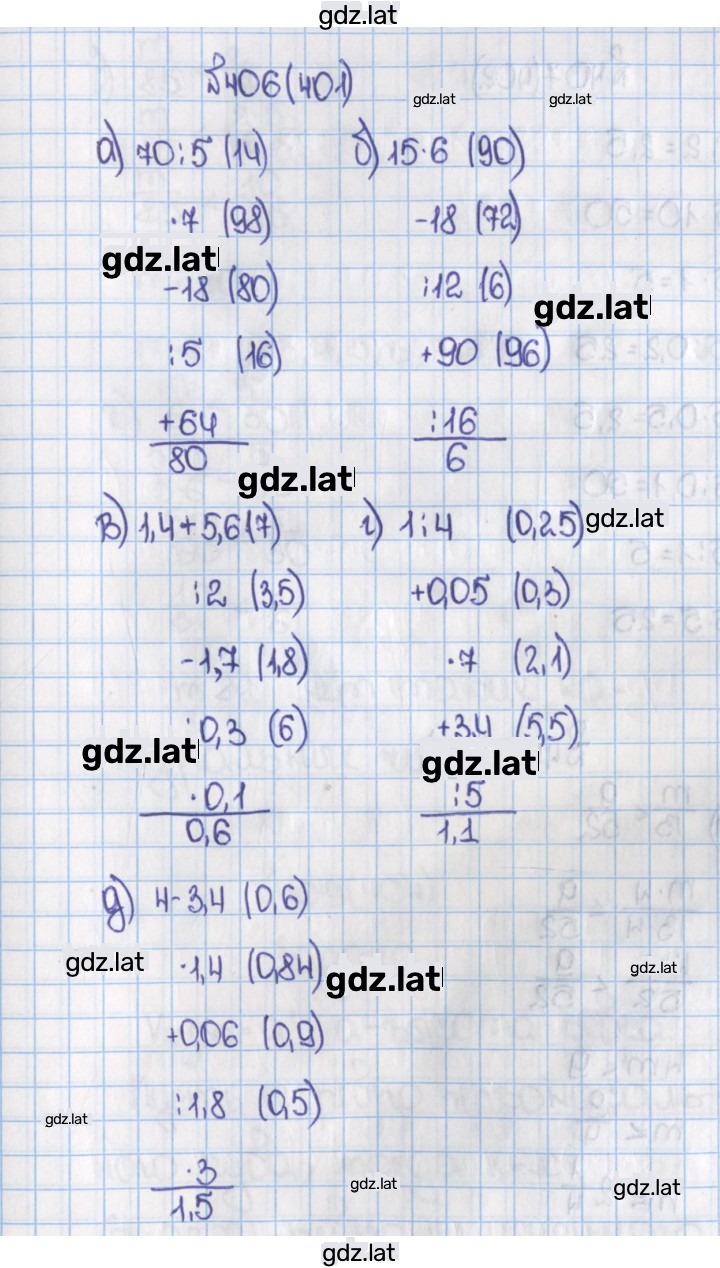 gdz.lat
№406 (401)
gdz.lat gdz.lat
а) 70:5 (14)
·7 (98)
gdz.lat
-18 (80)
:5 (16)
+64
80
б) 15·6 (90)
-18 (72)
:12 (6)
gdz.lat
+90 (96)
:16
6
gdz.lat
в) 1,4+5,6 (7)
:2 (3,5)
-1,7 (1,8)
:0,3 (6)
gdz.lat
·0,1
0,6
г) 1:4 (0,25)
gdz.lat
+0,05 (0,3)
·7 (2,1)
+3,4 (5,5)
gdz.lat
:5
1,1
д) 4-3,4 (0,6)
gdz.lat
·1,4 (0,84)
gdz.lat
gdz.lat
+0,06 (0,9)
:1,8 (0,5)
gdz.lat
·3
1,5
gdz.lat
gdz.lat
gdz.lat